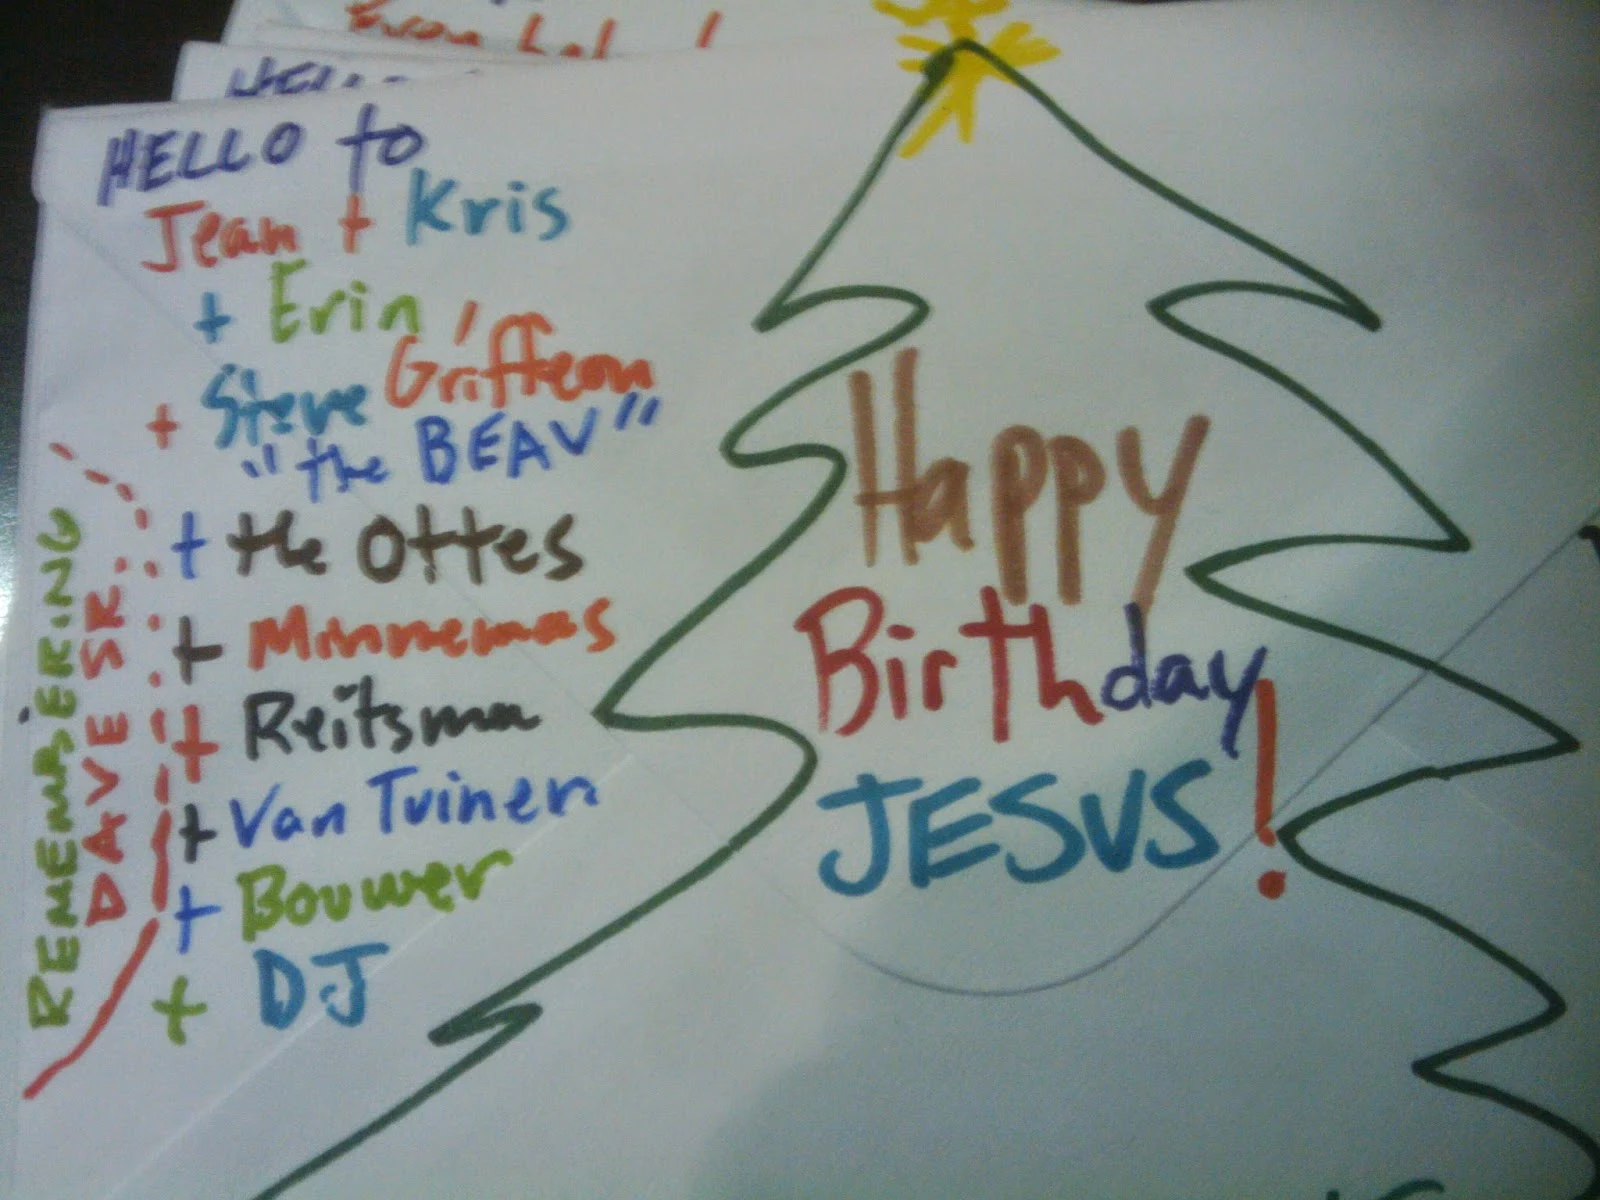 HELLO to
Jean + Kris
+ Erin
+ Steve Griffeon
"the BEAV"
+ the Ottes
+ Minnemas
+ Reitsma
+ Van Tuinen
+ Bouwer
+ DJ
REMEMBERING
DAVE SR.
Happy
Birthday
JESUS!